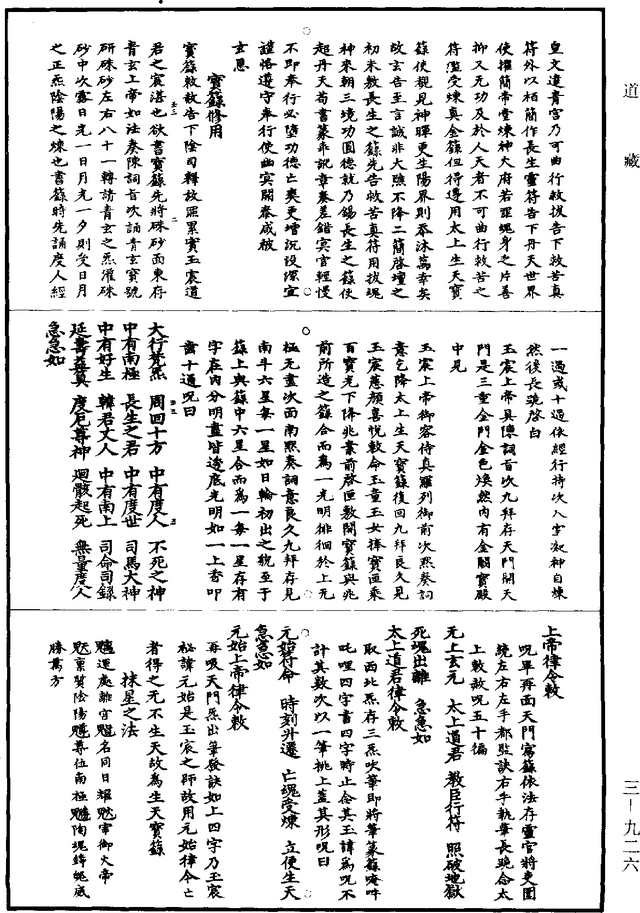 道藏
三—九二六
皇文達青宮乃可曲行敕援告下救苦真
符外以栢簡作長生靈符告下丹天世界
使擢簡帝堂煉神大府若罪魂身之片善
抑又无功及於人天者不可曲行敕苦之
符濫受煉真金籙但得導用太上生天寶
籙使觀見神暉更生陽界則添沐萬幸矣
故玄告至言誠非大醮不降二簡啓壇之
初米教長生之籙先告救苦真符用拔魂
神來朝三境功圓德就乃錫長生之籙使
超丹天苟書篆乖訛章奏差錯冥官輕慢
不即奉行必墮功德亡爽更墻沉設深宜
謹恪遵守奉行使幽冥開泰咸被
玄恩
寶籙修用
寶籙敕敖告下陰司釋放罪累實玉宸道
君之宸湛也欲書寶籙先將硃砂面東存
青玄上帝如法奏陳詞旨次誦青玄寶號
研硃砂左右八十一轉請青玄之炁灌硃
砂中次露日光一日月光一夕則受日月
之正炁陰陽之煉也書籙時先誦度人經
一過或十過依經行持次入字凝神自煉
然後長跪啓白
玉宸上帝具陳詞旨次九拜存天門開天
門是三重金門金色煥然內有金闕寶殿
中見
玉宸上帝御容侍真羅列御前次黙奏詞
意乞降太上生天寶籙復回九拜良久見
玉宸應顏喜悅敕命玉童玉女捧寶匣乘
百寶光下降兆素前啓匣敷開寶籙與兆
前所造之籙合而為一光明徘徊於上元
極元晝次面南黙奏詞意良久九拜存見
南斗六星每一星如日輪初出之貌至于
籙上與籙中六星合而為一每一星存有
字在內分明盡皆透底光明如一上香叩
齒十通呪曰
大行梵炁　周回十方　中有度人　不死之神
中有南極　長生之君　中有度世　司馬大神
中有好生　韓君丈人　中有南上　司命司錄
延壽益算　度厄尊神　迴骸起死　無量度人
急急如
上帝律令敕
呪畢再面天門寫籙依法存靈官將吏圍
繞左右左手都監訣右手執筆長跪念太
上敕赦呪五十徧
元上玄元　太上道君　敕臣行符　照破地獄
死魂出離　急急如
太上道君律令敕
取西北炁存三炁吹筆即將筆篆籙唵吽
吒哩四字書四字時止念其玉諱為呪不
計其數次以一筆挑上蓋其形呪曰
元始符命　時刻升遷　亡魂受煉　立便生天
急急如
元始上帝律令敕
再吸天門炁出筆發訣如上四字乃玉宸
祕諱元始是玉宸之師故用元始律令亡
者得之无不生天故為生天寶籙
抹星之法
魁運處離宮名同日耀牢御火帝
稟質陰陽尊位南極陶塊鋒威
勝萬方